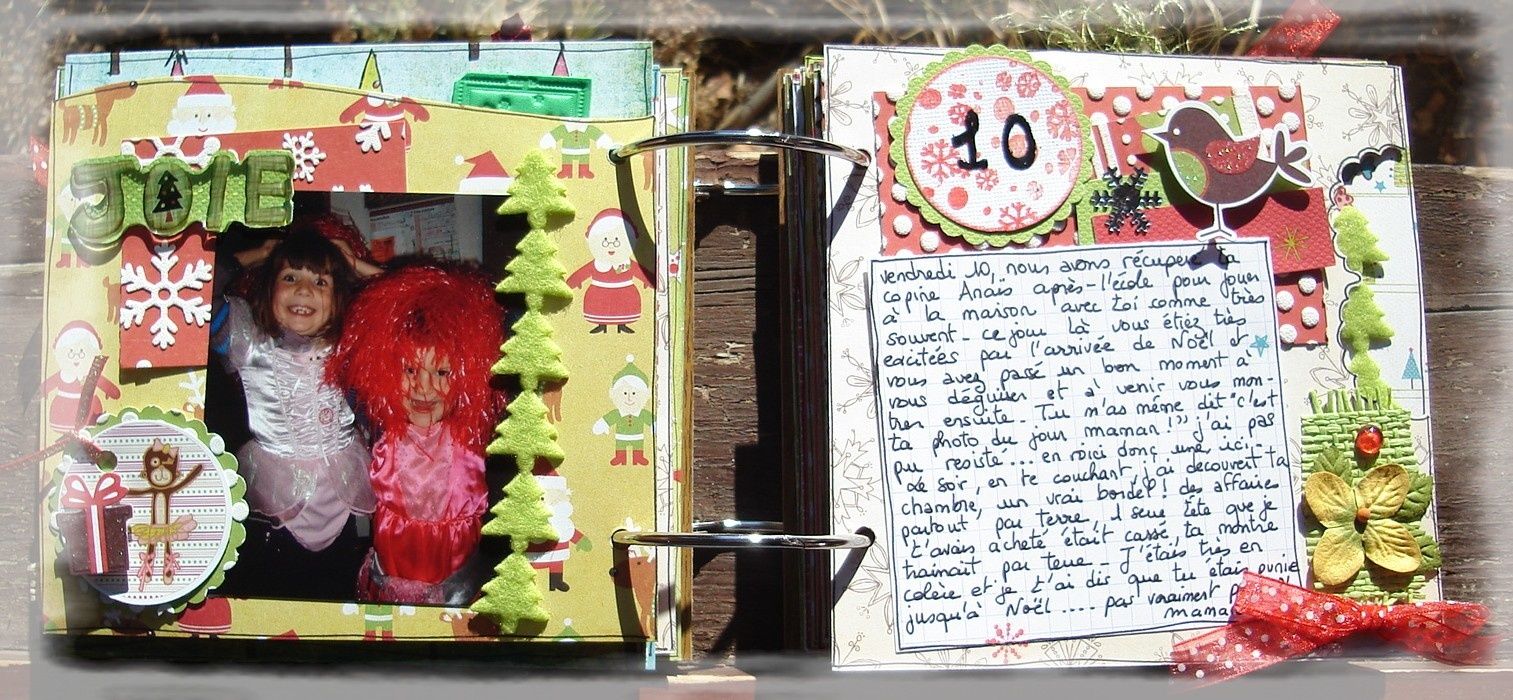 JOIE
10
vendredi 10, nous avons récupéré ta
copine Anaïs après-l'école pour jouer
à la maison avec toi comme très
souvent - ce jour là vous étiez très
excitées par l'arrivée de Noël et
vous avez passé un bon moment à
vous déguiser et à venir vous mon-
trer ensuite. Tu m'as même dit "c'est
ta photo du jour maman!" j'ai pas
pu resisté... en voici donc une ici -
ce soir, en te couchant, j'ai decouvert ta
chambre, un vrai bordel! des affaires
partout par terre, 1 serre tête que je
t'avais acheté était cassé, ta montre
trainait par terre - J'étais très en
colère et je t'ai dis que tu étais punie
jusqu'à Noël .... pas vraiment
maman